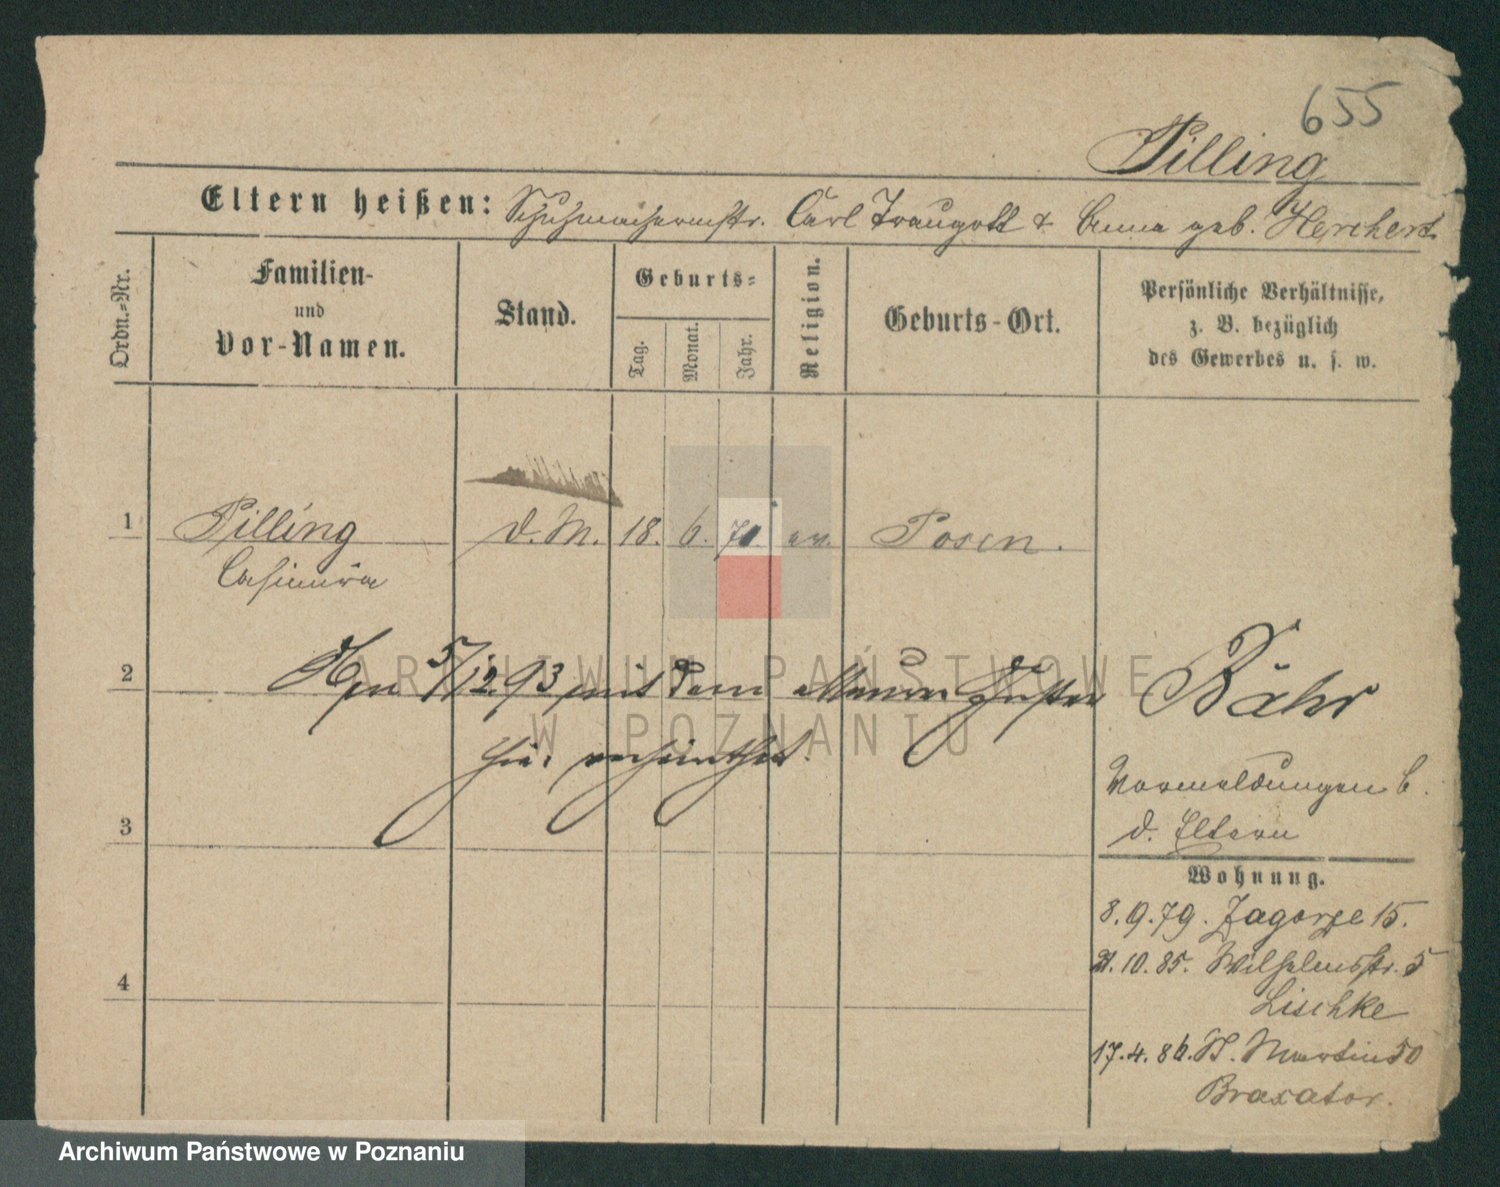 655
Pilling
Eltern heißen: Schuhmachermstr. Carl Traugott & Anna geb. Herchert
Ordn.-Nr.
Familien-
und
Vor-Namen.
Stand.
Geburts-
Tag.
Monat.
Jahr.
Religion.
Geburts-Ort.
Persönliche Verhältnisse,
z. B. bezüglich
des Gewerbes u. s. w.
1 Pilling D. M. 18. 6. 70. ev. Posen.
Casimira
2 5/12 93 mit dem Maurer Gustav Bähr
hier verheirathet.
Vormeldungen b.
d. Eltern
3
Wohnung.
8. 9. 79. Zagorze 15.
21. 10. 85. Wilhelmsstr. 5
Lischke
4
17. 4. 86. St. Martin 50
Braxator.
ARCHIWUM PAŃSTWOWE
W POZNANIU
Archiwum Państwowe w Poznaniu